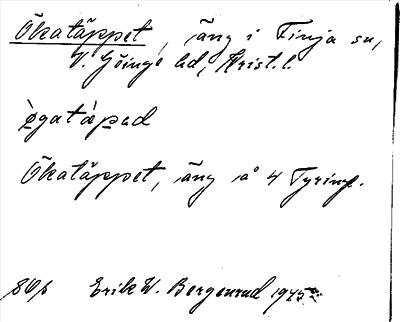 Ökatäppet, äng i Finja sn,
V. Göinge hd, Krist. l.
ø̀gatápad
Ökatäppet, äng å 4 Tyringe.
Erik W. Bergenrud 1945